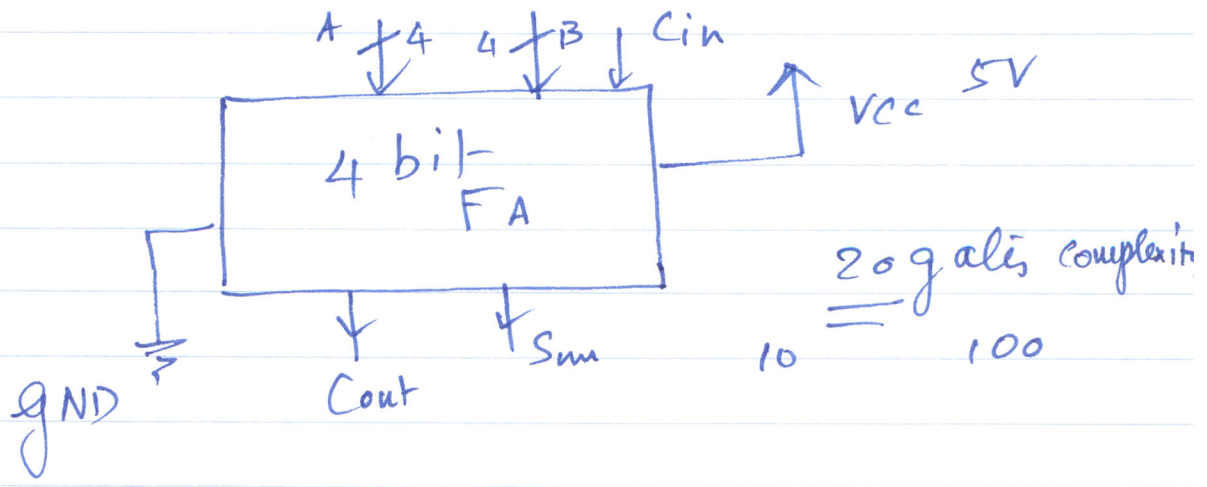 A 4 4 B Cin
VCC 5V
4 bit
FA
20 gates complexit
10 100
Sum
Cout
GND